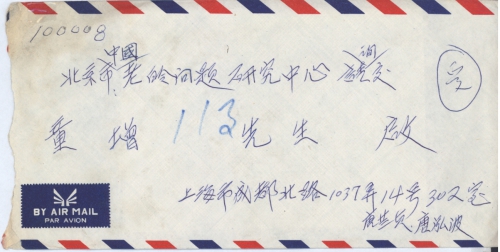 100008
中國
北京市老龄问题研究中心 转交
童增 113 先生 啟
上海市成都北路1037弄14号302室
唐泓波
BY AIR MAIL
PAR AVION